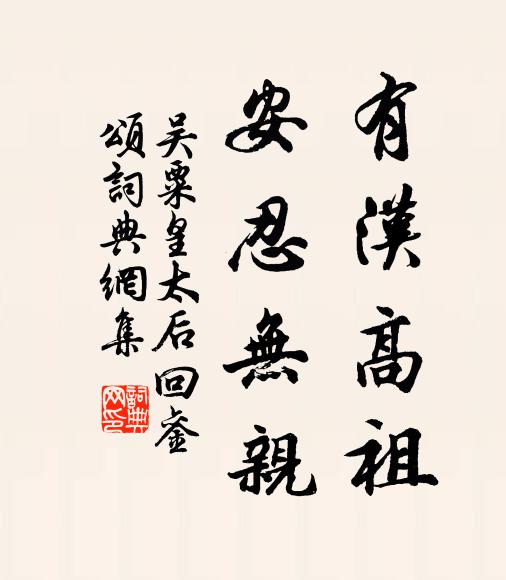 有漢高祖
安忍無親
吴粟皇太后回銮
頌詞典網集
詞典网印